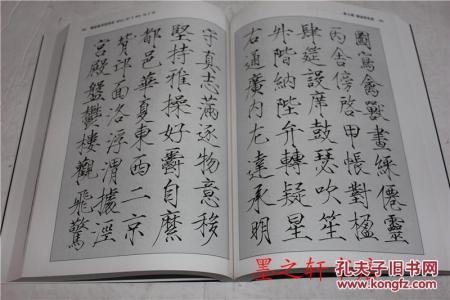 守真志滿逐物意移
堅持雅操好爵自縻
都邑華夏東西二京
背邙面洛浮渭據涇
宮殿盤鬱樓觀飛驚
圖寫禽獸畫綵僊靈
丙舍傍啓甲帳對楹
肆筵設席鼓瑟吹笙
升階納陛弁轉疑星
右通廣内左達承明
墨之轩
孔夫子旧书网
www.kongfz.com